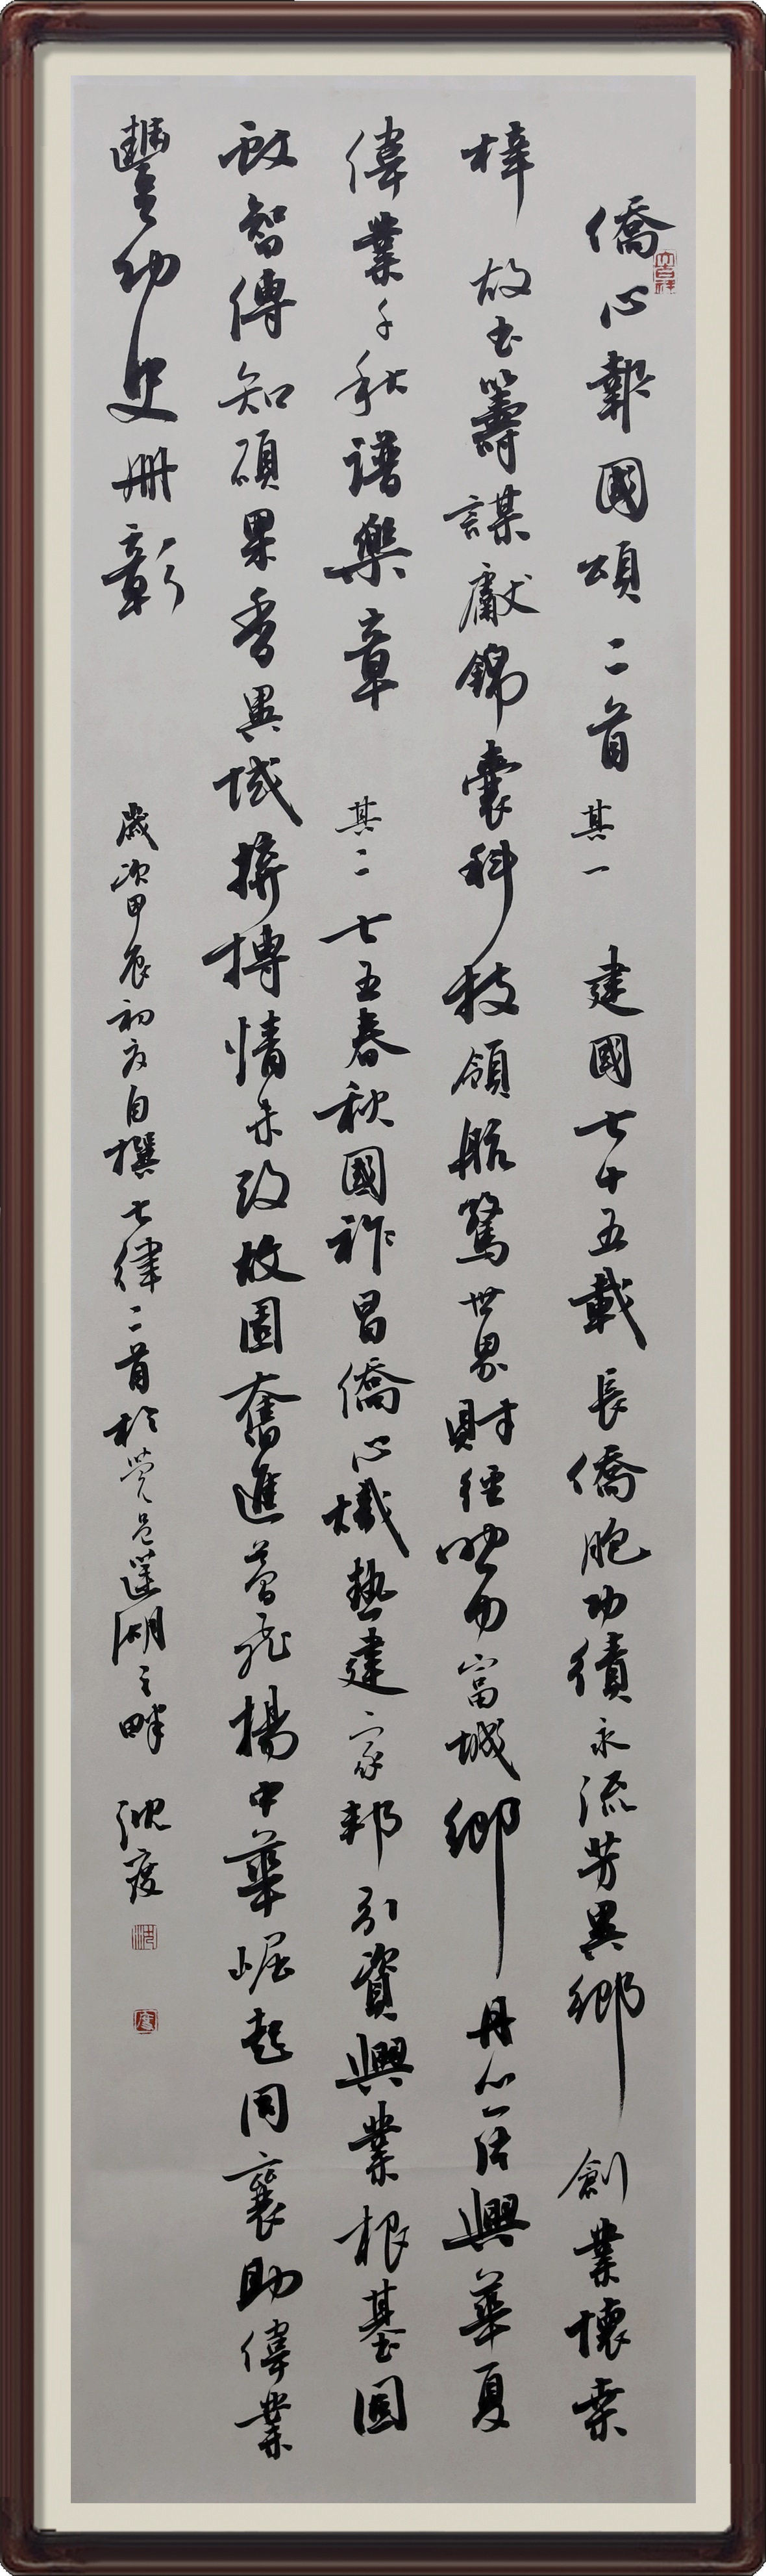 僑心報國頌二首 其一 建國七十五載長僑胞功績永流芳異鄉創業懷桑
大吉祥
梓故土籌謀獻錦囊科技領航驚世界財經力富城鄉丹心一興華夏
偉業千秋譜樂章 其二 七五春秋國祚昌僑心熾熱建家邦引資興業根基固
啟智傳知碩果香異域拼搏情未改故園奮進夢飛揚中華崛起同襄助偉業
豐功史冊彰
歲次甲辰初夏自撰七律二首於莞邑蓮湖之畔 沈度
沈
度